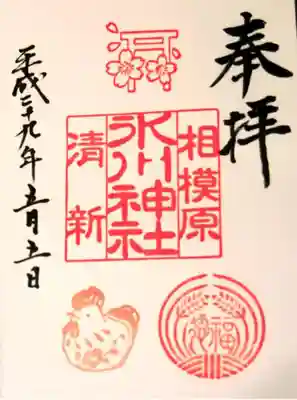 奉拝
相模原
氷川神社
清新
平成二十九年五月五日
福